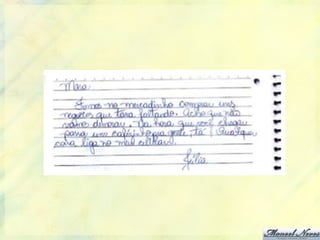 Mara
Fomos no mercadinho comprar uns
negócios que tava faltando. Acho que não
vamos demorar. Na hora que você chegar
passa um cafezinho pra gente, tá? Qualquer
coisa liga no meu celular.
Júlia
Manoel Neves